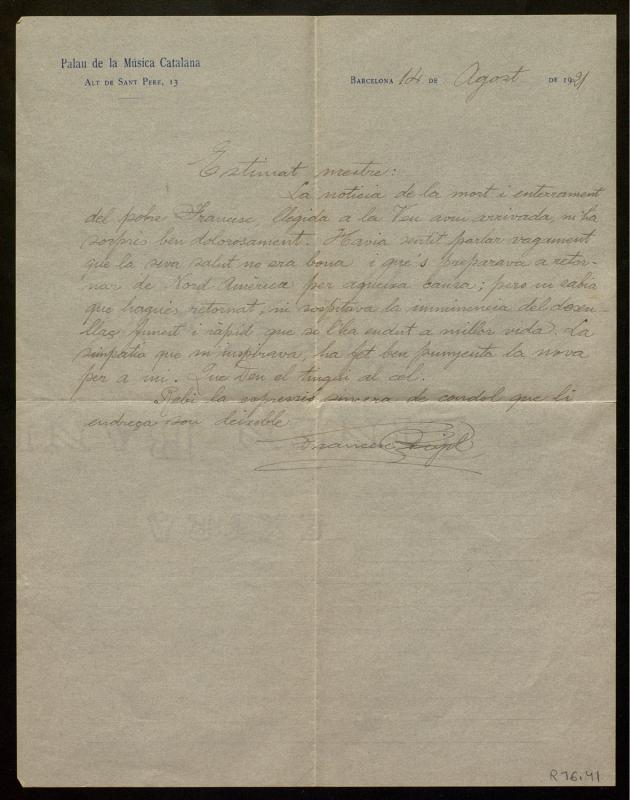 Palau de la Música Catalana
Alt de Sant Pere, 13
Barcelona 14 de Agost de 1921
Estimat mestre:
La noticia de la mort i enterrament
del pobre Francesc, llegida a la Veu avui arrivada, m'ha
sorprès ben dolorosament. Havia sentit parlar vagament
que la seva salut no era bona i que's preparava a retor-
nar de Nord Amèrica per aqueixa causa; pero ni sabia
que hagués retornat, ni sospitava la imminencia del desen-
llaç funest i ràpid que se l'ha endut a millor vida. La
simpatia que m'inspirava, ha fet ben punyenta la nova
per a mi. Que Deu el tingui al cel.
Rebi la expressió sincera de condol que li
endreça son deixeble
Francesc Pujol
EXTRA
R76.41